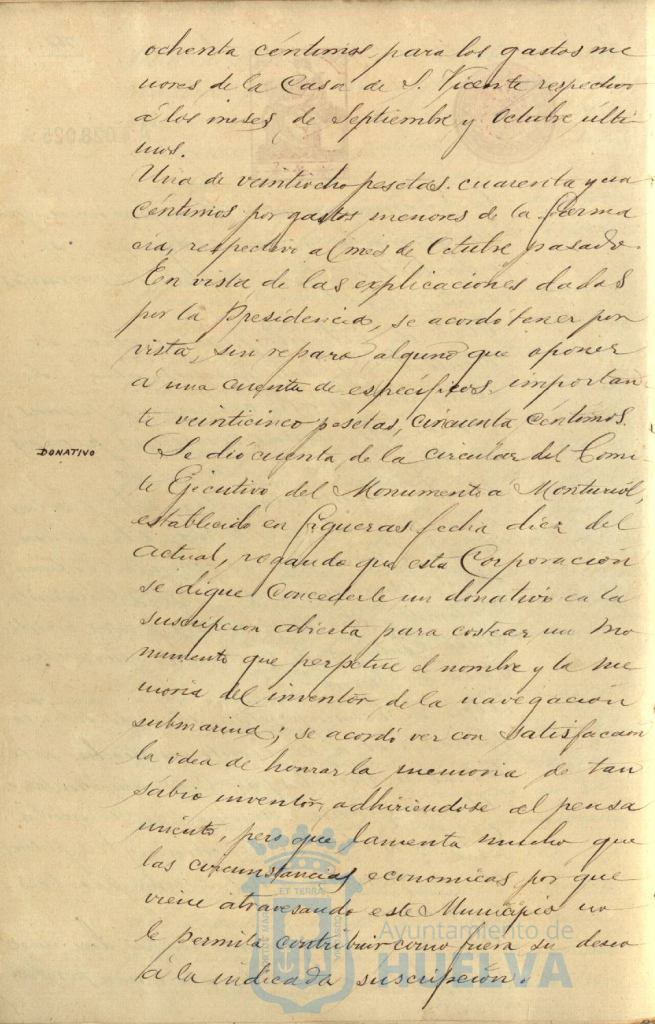 ochenta céntimos, para los gastos me
nores de la Casa de S. Vicente respectivo
á los meses de Septiembre y Octubre últi
mos.
Una de veintiocho pesetas cuarenta y un
céntimos por gastos menores de la farma
cia, respectivo al mes de Octubre pasado.
En vista de las explicaciones dadas
por la Presidencia, se acordó tener por
vista, sin reparo alguno que oponer
á una cuenta de específicos, importan
te veinticinco pesetas, cincuenta céntimos.
DONATIVO
Se dió cuenta de la circular del Comi
te Ejecutivo del Monumento á Monturiol,
establecido en Figueras fecha diez del
actual, rogando que esta Corporación
se digne concederle un donativo en la
suscripcion abierta para costear un mo
numento que perpetue el nombre y la me
moria del inventor de la navegación
submarina; se acordó ver con satisfacción
la idea de honrar la memoria de tan
sábio inventor, adhiriendose al pensa
miento, pero que lamenta mucho que
las circunstancias economicas por que
viene atravesando este Municipio no
le permita contribuir como fuera su deseo
á la indicada suscripción.
ET TERRAE
Ayuntamiento de
HUELVA